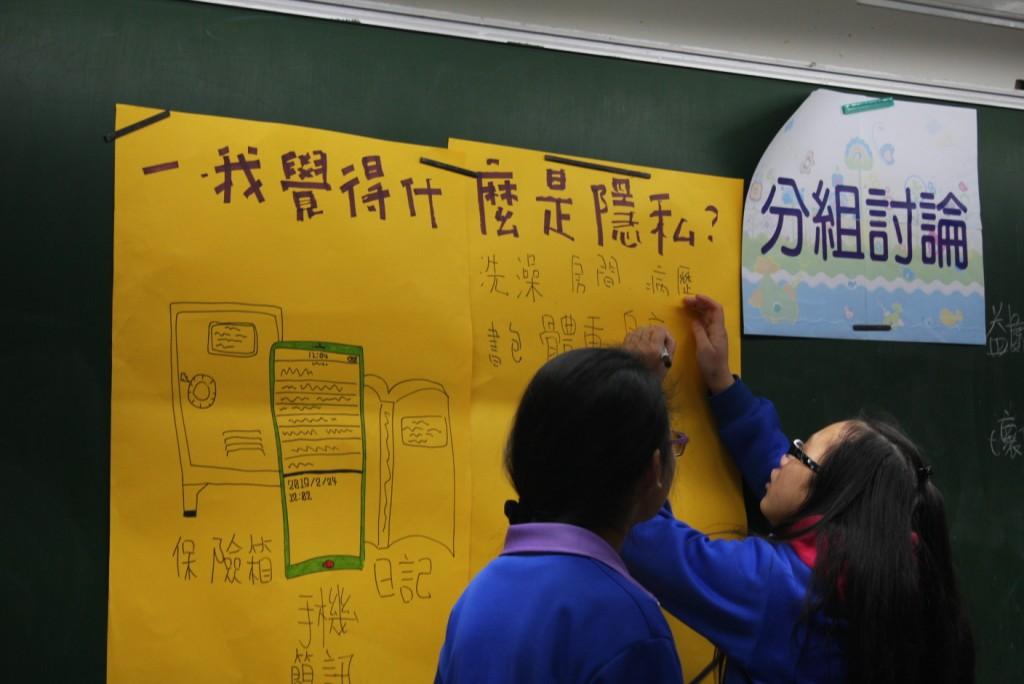 一.我覺得什麼是隱私?
洗澡 房間 病歷
書包 體重
分組討論
12:04
2019/2/24
12:02
保險箱
日記
手機
簡訊
益
壞